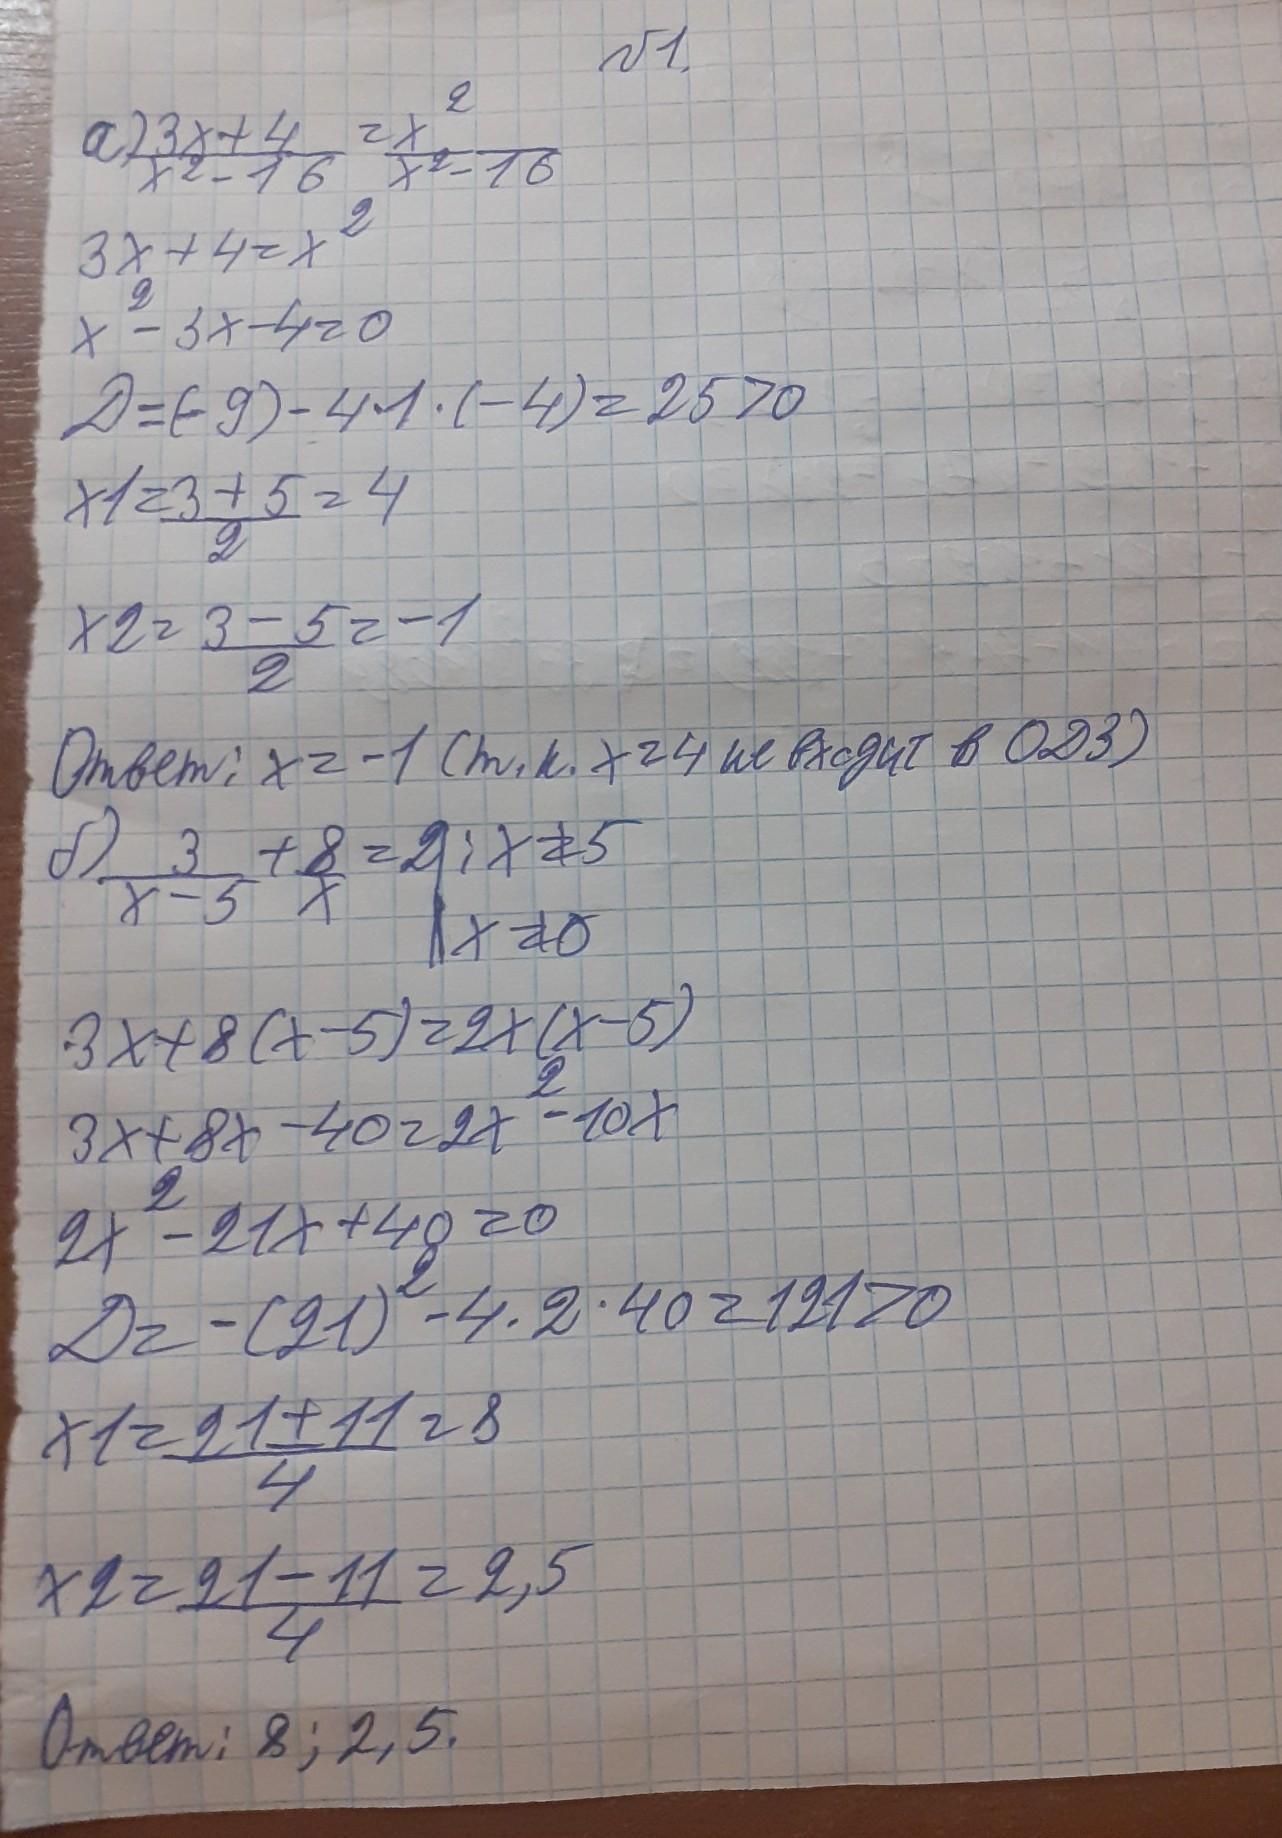 №1.
а) 3x+4 / x²-16 = x² / x²-16
3x+4=x²
x²-3x-4=0
D=(-9)-4·1·(-4)=25>0
x1=3+5/2=4
x2=3-5/2=-1
Ответ: x=-1 (т.к. x=4 не входит в ОДЗ)
б) 3/x-5 + 8/x = 2; x≠5
x≠0
3x+8(x-5)=2x(x-5)
3x+8x-40=2x²-10x
2x²-21x+40=0
D=-(21)²-4·2·40=121>0
x1=21+11/4=8
x2=21-11/4=2,5
Ответ: 8; 2,5.